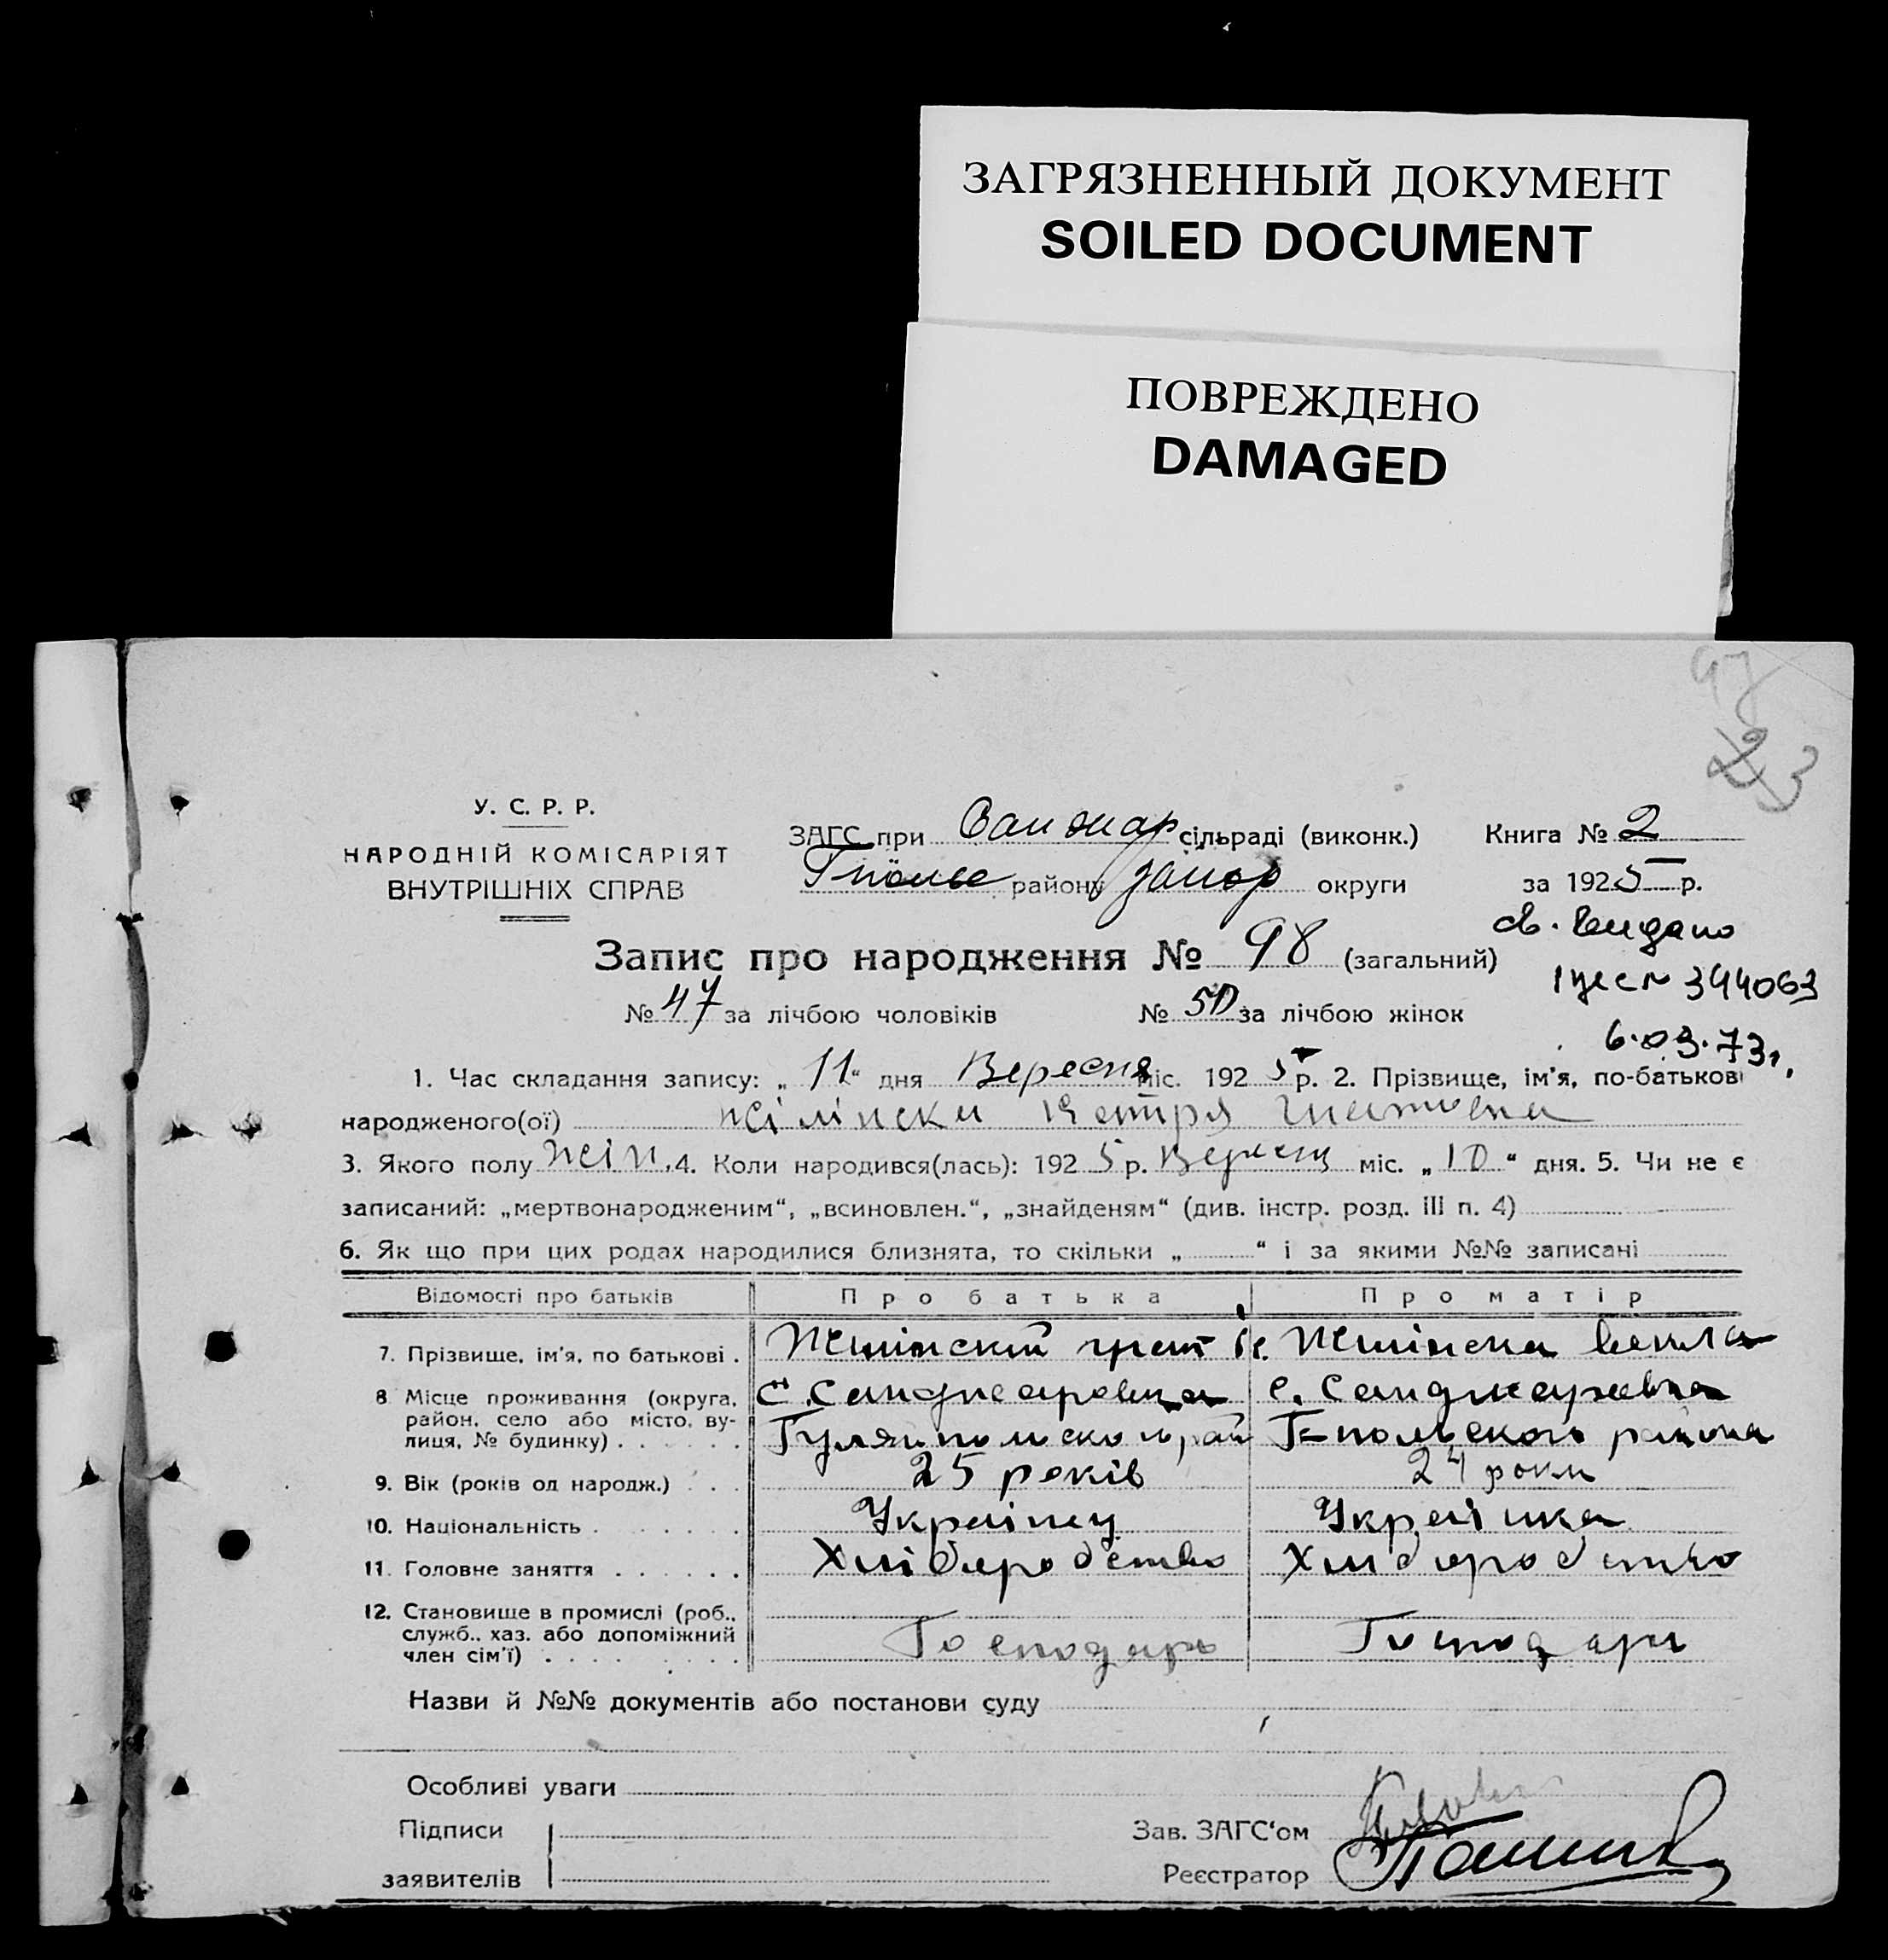 ЗАГРЯЗНЕННЫЙ ДОКУМЕНТ
SOILED DOCUMENT
ПОВРЕЖДЕНО
DAMAGED
97
23
У. С. Р. Р.
НАРОДНІЙ КОМІСАРІЯТ
ВНУТРІШНІХ СПРАВ
ЗАГС при Санжар сільраді (виконк.)
Гпольс району Запор округи
Книга № 2
за 1925 р.
св. видано
394063
6.03.73г.
Запис про народження № 98 (загальний)
№ 47 за лічбою чоловіків № 50 за лічбою жінок
1. Час складання запису: „11“ дня Вересня міс. 1925 р. 2. Прізвище, ім'я, по-батькові
народженого(ої) Кетря Гнатовна
3. Якого полу жін. 4. Коли народився(лась): 1925 р. Вересня міс. „10“ дня. 5. Чи не є
записаний: „мертвонародженим“, „всиновлен.“, „знайденям“ (див. інстр. розд. III п. 4)
6. Як що при цих родах народилися близнята, то скільки „ “ і за якими №№ записані
Відомості про батьків Про батька Про матір
7. Прізвище, ім'я, по батькові . Жилінский Гнат Жилінска Векла
8 Місце проживання (округа, район, село або місто, вулиця, № будинку) . . . . . . с. Санджаровка Гуляйпольского рай с. Санджаровка Г=польского району
9. Вік (років од народж.) . . . 25 років 24 роки
10. Національність . . . . . . . Українец Українка
11. Головне заняття . . . . . . Хліборобство Хліборобство
12. Становище в промислі (роб., служб., хаз. або допоміжний член сім'ї) . . . . . . . . Господарь Господарь
Назви й №№ документів або постанови суду
Особливі уваги
Підписи
заявителів
Зав. ЗАГС'ом
Реєстратор